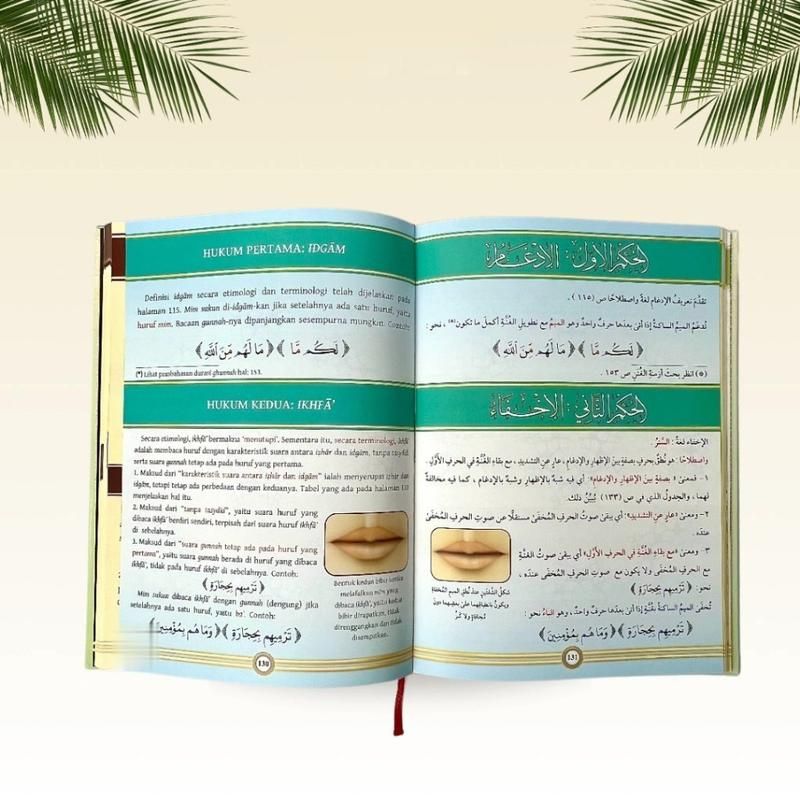 HUKUM PERTAMA: IDGĀM
Definisi idgām secara etimologi dan terminologi telah dijelaskan pada
halaman 115. Mim sukun di-idgām-kan jika setelahnya ada satu huruf, yaitu
huruf mim. Bacaan gunnah-nya dipanjangkan sesempurna mungkin. Contoh:
﴿ لَكُم مَّا ﴾ ﴿ مَا لَهُم مِّنَ اللَّهِ ﴾
(*) Lihat pembahasan durasi ghunnah hal: 153.
HUKUM KEDUA: IKHFĀ'
Secara etimologi, ikhfā' bermakna 'menutupi'. Sementara itu, secara terminologi, ikhfā'
adalah membaca huruf dengan karakteristik suara antara izhār dan idgām, tanpa tasydīd,
serta suara gunnah tetap ada pada huruf yang pertama.
1. Maksud dari "karakteristik suara antara izhār dan idgām" ialah menyerupai izhār dan
idgām, tetapi tetap ada perbedaan dengan keduanya. Tabel yang ada pada halaman 133
menjelaskan hal itu.
2. Maksud dari "tanpa tasydīd", yaitu suara huruf yang
dibaca ikhfā' berdiri sendiri, terpisah dari suara huruf ikhfā'
di sebelahnya.
3. Maksud dari "suara gunnah tetap ada pada huruf yang
pertama", yaitu suara gunnah berada di huruf yang dibaca
ikhfā', tidak pada huruf ikhfā' di sebelahnya. Contoh:
﴿ تَرْمِيهِم بِحِجَارَةٍ ﴾
Mim sukun dibaca ikhfā' dengan gunnah (dengung) jika
setelahnya ada satu huruf, yaitu ba'. Contoh:
﴿ تَرْمِيهِم بِحِجَارَةٍ ﴾ ﴿ وَمَا هُم بِمُؤْمِنِينَ ﴾
Bentuk kedua bibir ketika
melafalkan mim yang
dibaca ikhfā', yaitu kedua
bibir dirapatkan, tidak
direnggangkan dan tidak
disempatkan.
130
الحكم الأول: الإدغام
تقدَّم تعريفُ الإدغام لغةً واصطلاحًا ص (١١٥).
تُدغَمُ الميمُ الساكنةُ إذا أتىٰ بعدَها حرفٌ واحدٌ وهو الميمُ مع تطويلِ الغُنَّةِ أكملَ ما تكون(*)، نحو:
﴿ لَكُم مَّا ﴾ ﴿ مَا لَهُم مِّنَ اللَّهِ ﴾
(*) انظر بحث أزمنة الغُنَن ص ١٥٣.
الحكم الثاني: الإخفاء
الإخفاء لغةً: السَّتْرُ.
واصطلاحًا: هو نُطْقٌ بحرفٍ بصفةٍ بينَ الإظهارِ والإدغامِ، عارٍ عنِ التشديدِ، مع بقاءِ الغُنَّةِ في الحرفِ الأوَّلِ.
١- فمعنىٰ «بصفةٍ بينَ الإظهارِ والإدغامِ»: أي فيه شبهٌ بالإظهارِ وشبهٌ بالإدغام، كما فيه مخالفةٌ
لهما، والجدولُ الذي في ص (١٣٣) يُبيِّنُ ذلك.
٢- ومعنىٰ «عارٍ عنِ التشديدِ» أي يبقىٰ صوتُ الحرفِ المُخفَىٰ مستقلًّا عن صوتِ الحرفِ المُخفَىٰ
عندَه.
٣- ومعنىٰ «مع بقاءِ الغُنَّةِ في الحرفِ الأوَّلِ» أي يبقىٰ صوتُ الغُنَّةِ
مع الحرفِ المُخفَىٰ ولا يكون مع صوتِ الحرفِ المُخفَىٰ عندَه.
نحو: ﴿ تَرْمِيهِم بِحِجَارَةٍ ﴾
تُخفَىٰ الميمُ الساكنةُ بغُنَّةٍ إذا أتىٰ بعدَها حرفٌ واحدٌ، وهو الباءُ نحو:
﴿ تَرْمِيهِم بِحِجَارَةٍ ﴾ ﴿ وَمَا هُم بِمُؤْمِنِينَ ﴾
شكلُ الشَّفتَينِ عندَ نُطقِ الميمِ المُخفاةِ
ويكونُ بانطباقِهما علىٰ بعضِهما دونَ
ولا كَزٍّ
131